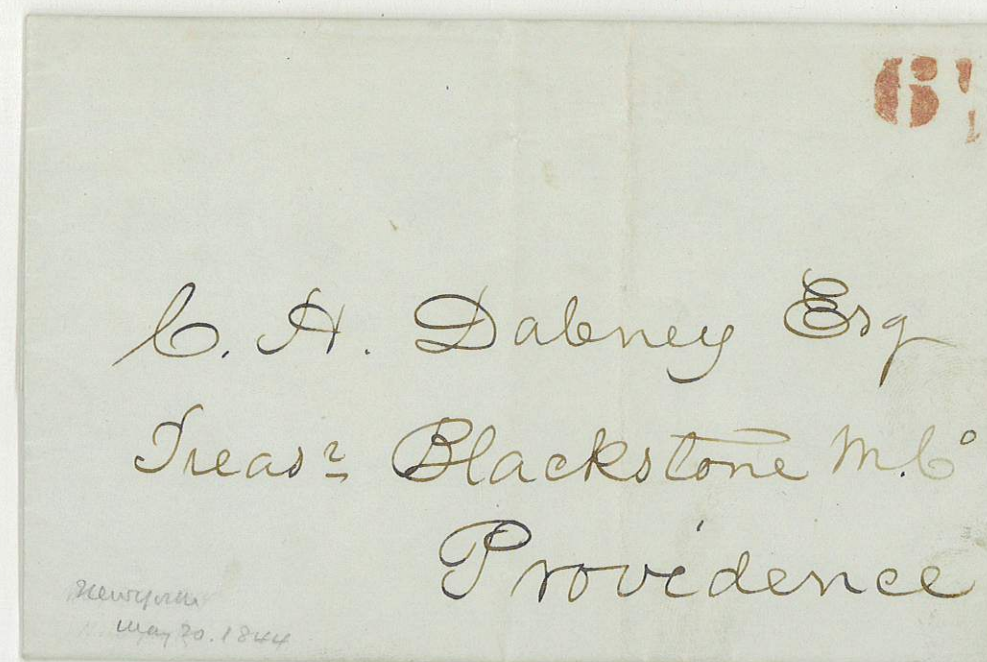 6
C. H. Dabney Esq
Treasr Blackstone M. Co
Providence
New York
May 20. 1844